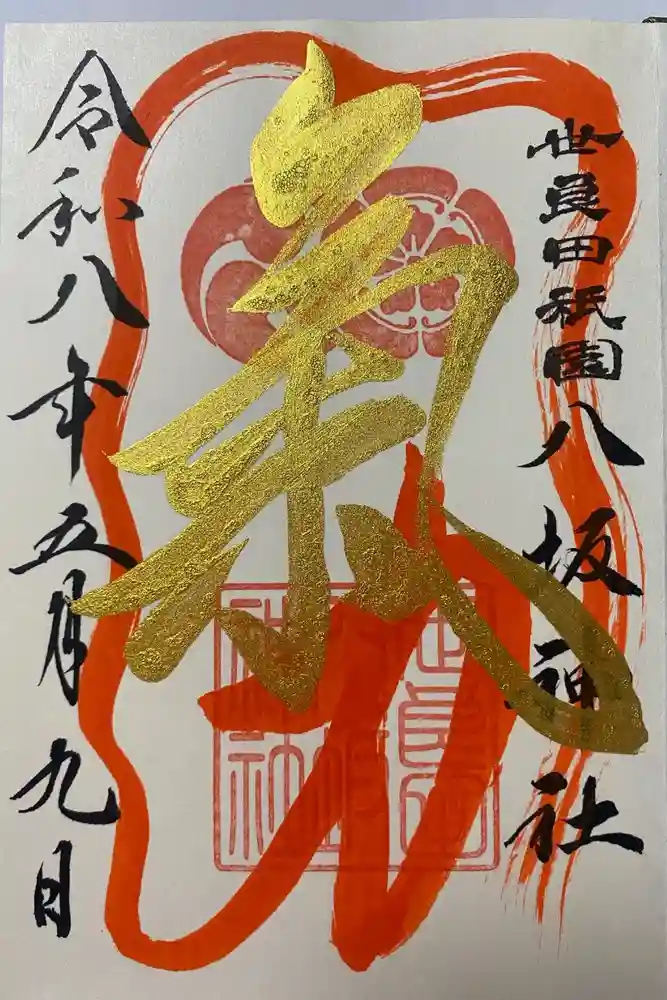 世良田祇園八坂神社
氣
令和八年五月九日